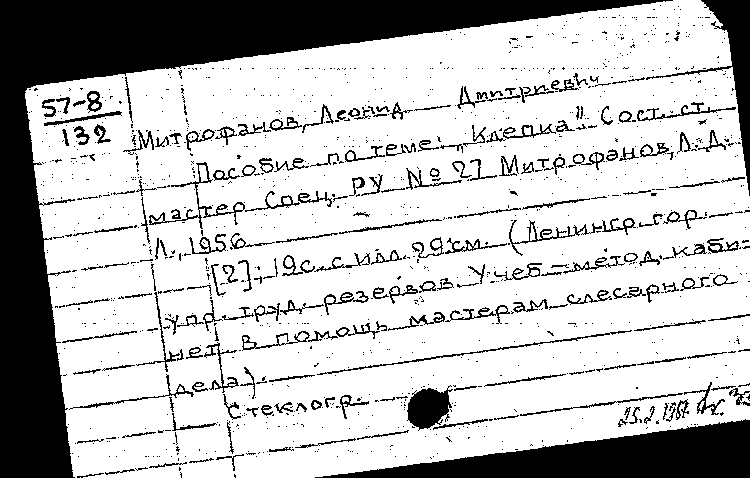 57-8
132
Митрофанов, Леонид Дмитриевич
Пособие по теме: „Клепка" Сост. ст.
мастер Спец. РУ № 27 Митрофанов, Л.Д.
Л., 1956
[2]; 19с. с илл. 29см. (Ленингр. гор.
упр. труд. резервов. Учеб-метод. каби-
нет В помощь мастерам слесарного
дела).
Стеклогр.
25.2.